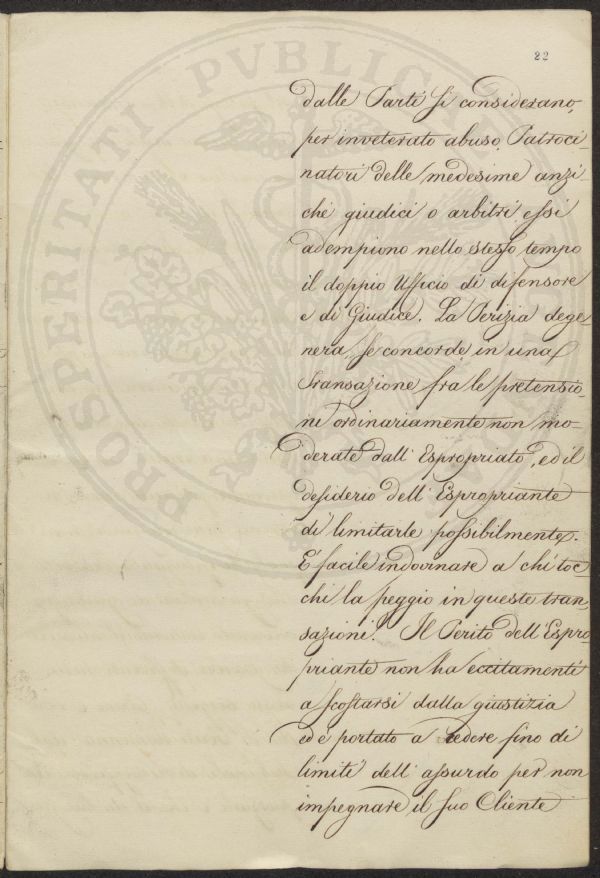 22
dalle Parti si considerano,
per inveterato abuso, Patroci-
natori delle medesime anzi-
chè giudici o arbitri, essi
adempiono nello stesso tempo
il doppio Ufficio di difensore
e di Giudice. La Perizia dege-
nera, se concorde, in una
Transazione fra le pretensio-
ni ordinariamente non mo-
derate dall'Espropriato, ed il
desiderio dell'Espropriante
di limitarle possibilmente.
È facile indovinare a chi toc-
chi la peggio in queste tran-
sazioni. Il Perito dell'Espro-
priante non ha eccitamenti
a scostarsi dalla giustizia
ed è portato a cedere fino di
limiti dell'assurdo per non
impegnare il suo Cliente
PROSPERITATI PVBLICAE